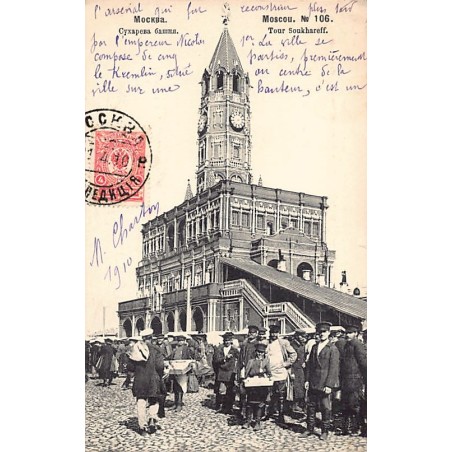 l'arsenal qui fut reconstruit plus tard
Москва.
Сухарева башня.
Moscou. № 106.
Tour Soukhareff.
par l'empereur Nicolas 1er. La ville se
compose de cinq parties, premièrement
le Kremlin, situé au centre de la
ville sur une hauteur, c'est un
МОСКВА
4 10
M. Charton
1910